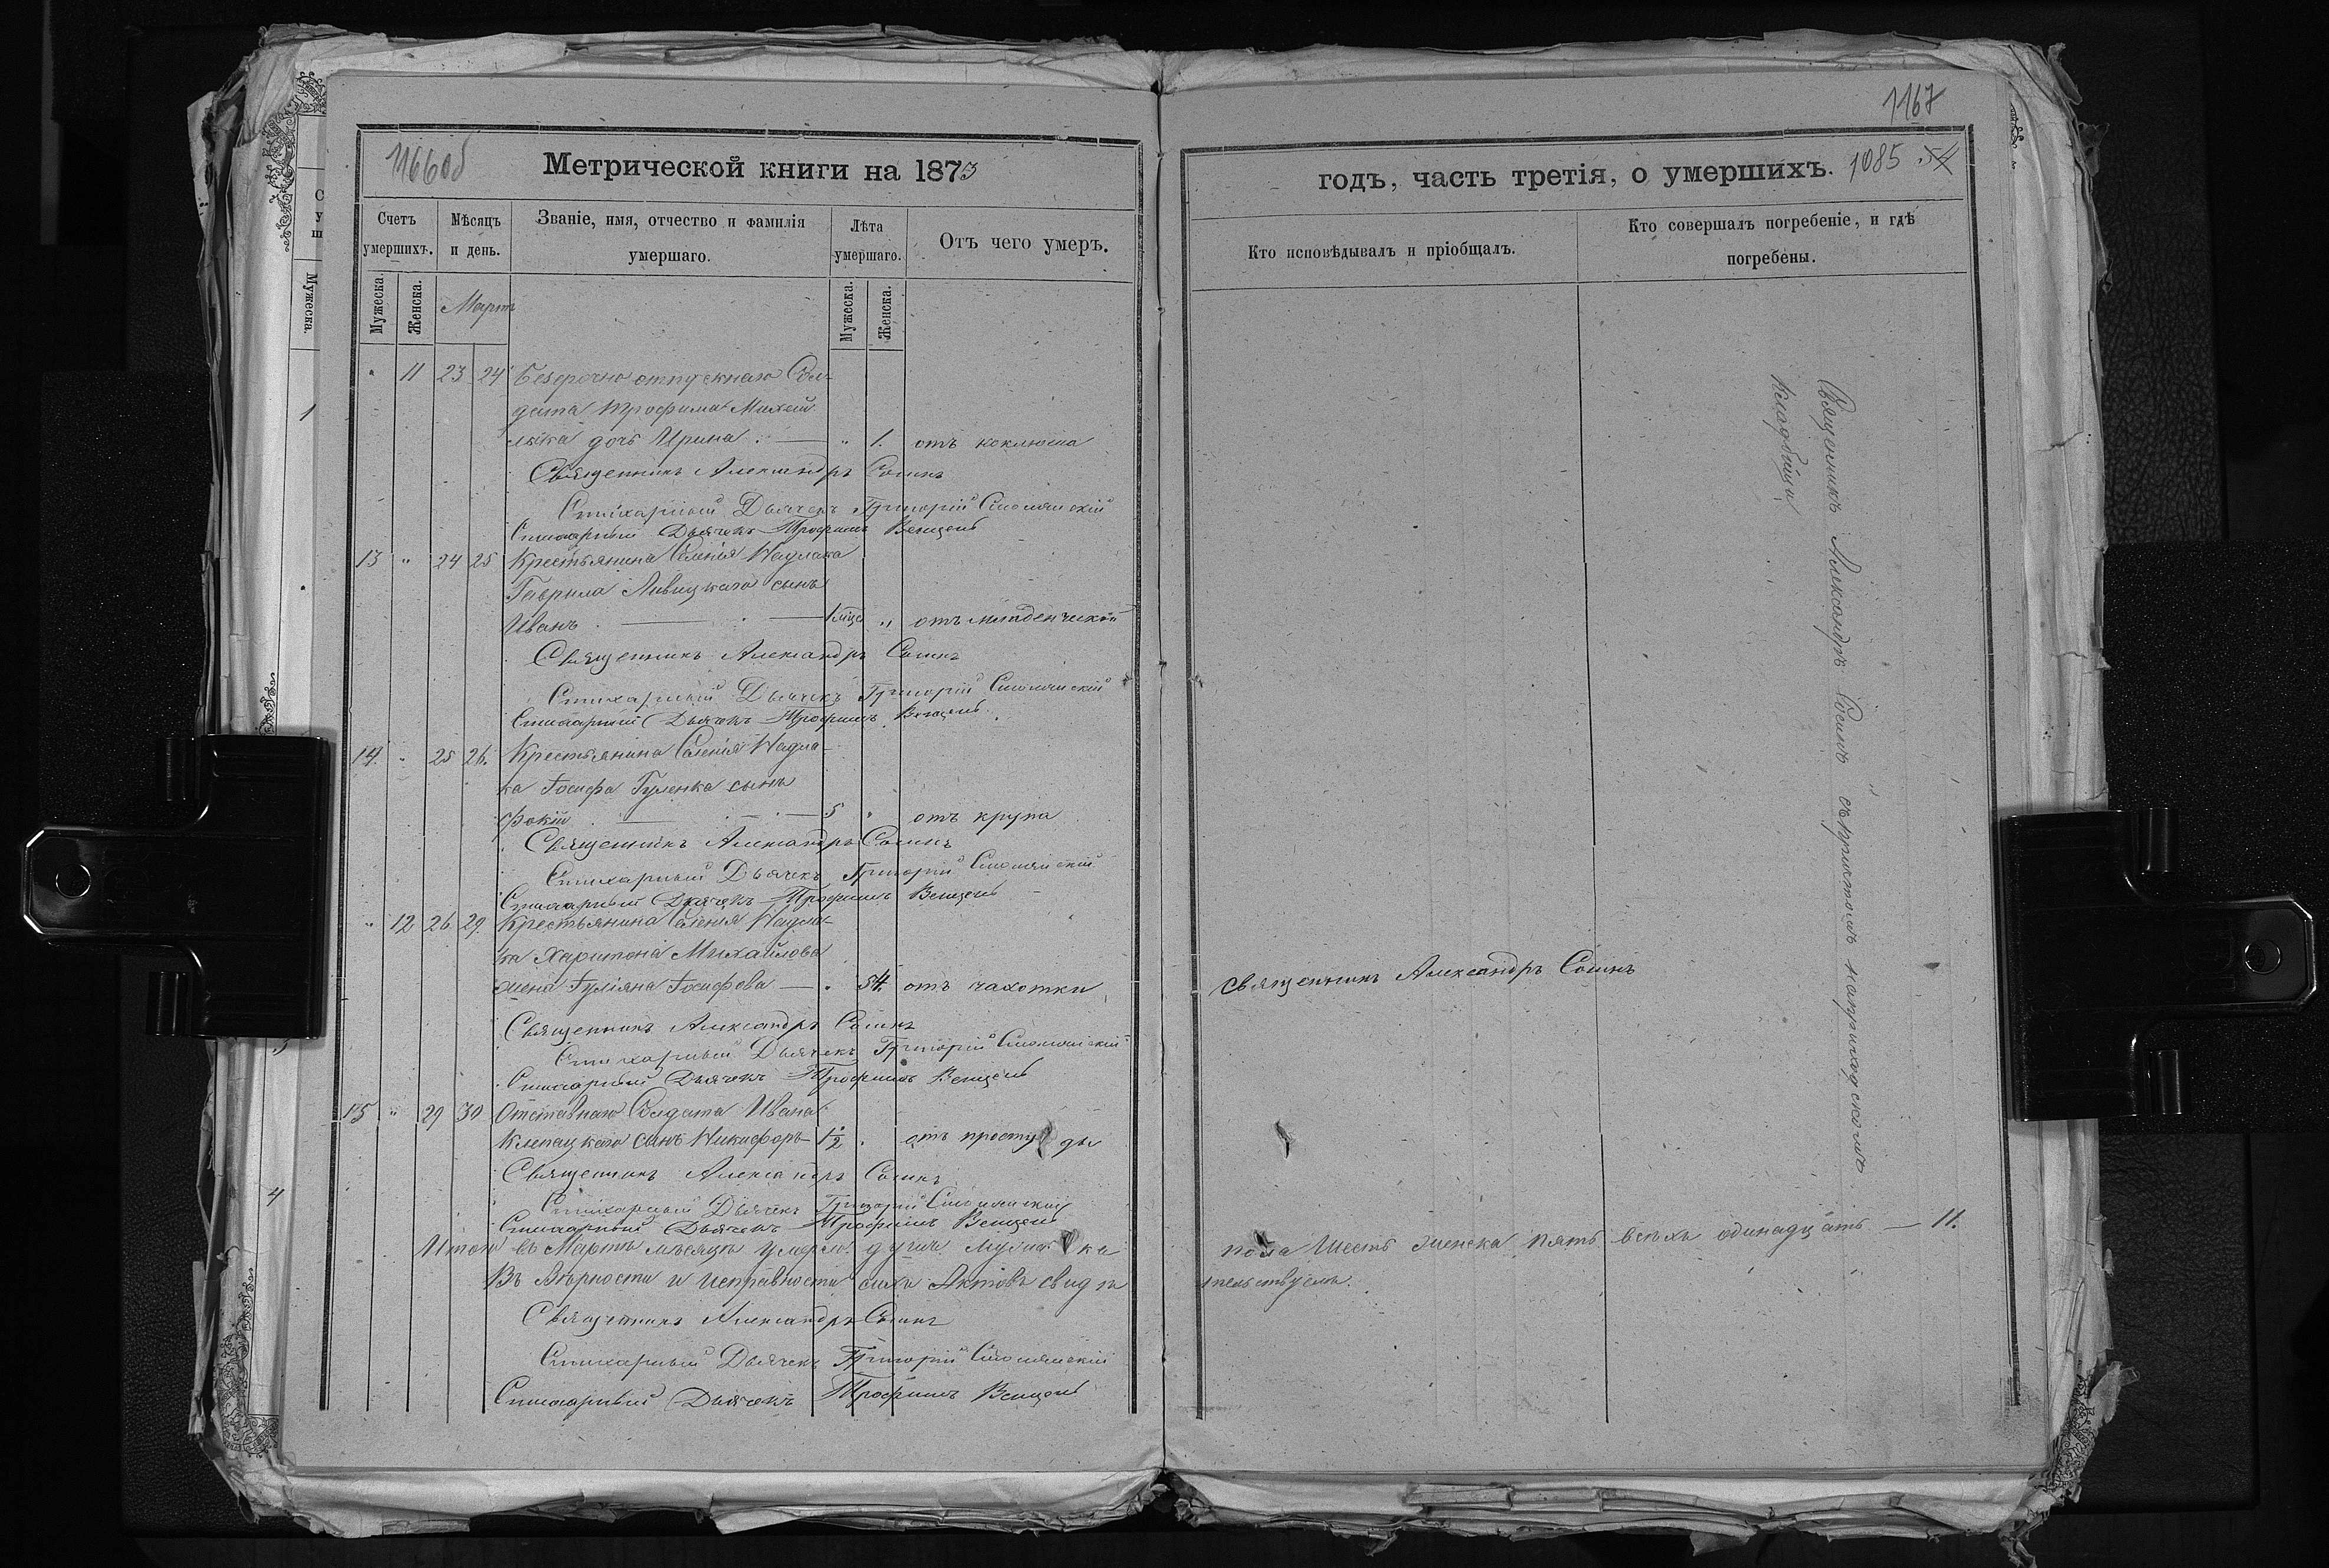 1166об
Метрической книги на 1873
Счетъ умершихъ.
Мѣсяцъ и день.
Званіе, имя, отчество и фамилія умершаго.
Лѣта умершаго.
Отъ чего умеръ.
Мужеска.
Женска.
Мартъ
Мужеска.
Женска.
" 11 23 24 Безсрочно отпускнаго Сол-
дата Трофима
дочь Ирина. — " 1. отъ коклюша
Священникъ Александръ
Стихарный Дьячекъ Григорій
Стихарный Дьячекъ Трофимъ
13 " 24 25 Крестьянина Селенія Надлака
Гаврила Ливицкаго сынъ
Иванъ. — " отъ младенческой
Священникъ Александръ
Стихарный Дьячекъ Григорій
Стихарный Дьячекъ Трофимъ
14. " 25 26. Крестьянина Селенія Надла-
ка Іосифа Гуленка сынъ
Фокій — 5 " отъ крупа
Священникъ Александръ
Стихарный Дьячекъ Григорій
Стихарный Дьячекъ Трофимъ
" 12 26 29. Крестьянина Селенія Надла-
ка Харитона Михайлова
жена Іуліяна Іосифова — " 54. отъ чахотки
Священникъ Александръ
Стихарный Дьячекъ Григорій
Стихарный Дьячекъ Трофимъ
15 " 29 30 Отставнаго Солдата Ивана
Клепацкаго сынъ Никифоръ 1½ . отъ простуды
Священникъ Александръ
Стихарный Дьячекъ Григорій
Стихарный Дьячекъ Трофимъ
Итого въ Мартѣ мѣсяцѣ умерло душъ мужеска
Въ вѣрности и исправности сихъ Актовъ свидѣ
Священникъ Александръ
Стихарный Дьячекъ Григорій
Стихарный Дьячекъ Трофимъ
1167
годъ, часть третія, о умершихъ. 1085 54
Кто исповѣдывалъ и пріобщалъ.
Кто совершалъ погребеніе, и гдѣ погребены.
Священникъ Александръ съ причтомъ на приходскомъ
кладбищи
Священникъ Александръ
пола шесть женска пять всѣхъ одинадцать — 11.
тельствуемъ.
С
у
ш
Мужеска.
1
4